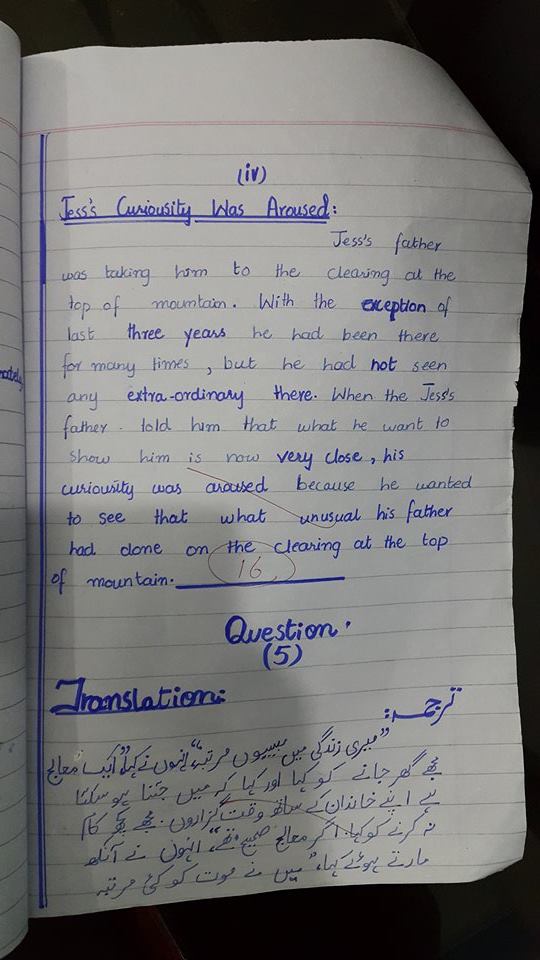 (iv)
Jess's Curiousity Was Aroused:
Jess's father
was taking him to the clearing at the
top of mountain. With the exception of
last three years he had been there
for many times, but he had not seen
any extra-ordinary there. When the Jess's
father told him that what he want to
show him is now very close, his
curiousity was aroused because he wanted
to see that what unusual his father
had done on the clearing at the top
of mountain.
16
Question.
(5)
Translation:
ترجمہ:
"میری زندگی میں بیسیوں مرتبہ"، انہوں نے کہا، "ایک معالج
مجھے گھر جانے کو کہا اور کہا کہ میں جتنا ہو سکتا
ہے اپنے خاندان کے ساتھ وقت گزاروں. مجھے کچھ کام
نہ کرنے کو کہا. اگر معالج صحیح تھے"، انہوں نے آنکھ
مارتے ہوئے کہا، "میں نے موت کو کئی مرتبہ